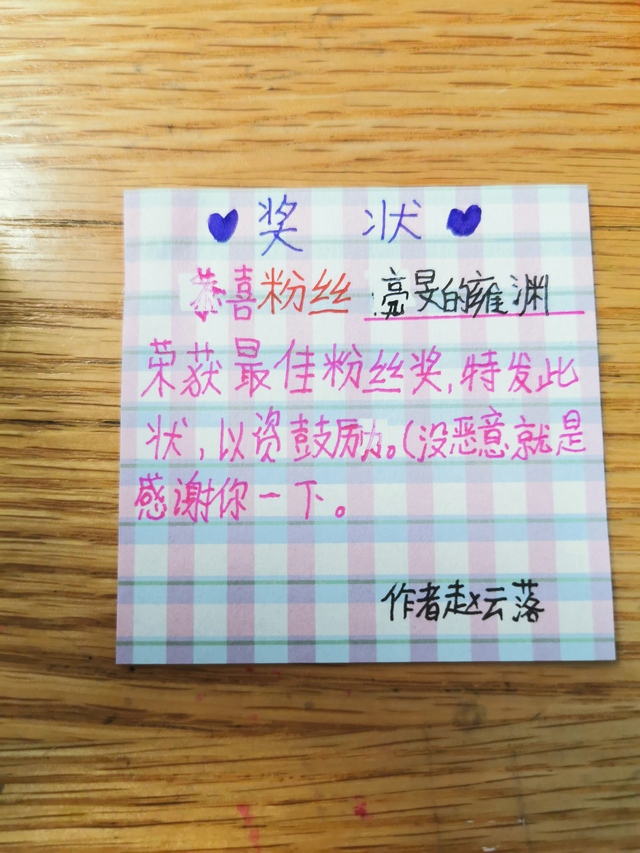 奖状
恭喜粉丝 亮旻的雍渊
荣获最佳粉丝奖,特发此
状,以资鼓励。(没恶意就是
感谢你一下。
作者赵云落